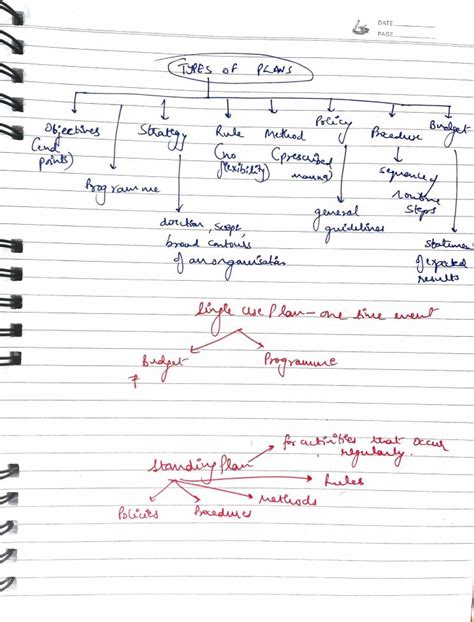 DATE
PAGE
TYPES OF PLANS
Objectives
(end
points)
Programme
Strategy
direction, scope,
broad contours
of an organisation
Rule
(no
flexibility)
Method
(prescribed
manner)
Policy
general
guidelines
Procedure
sequence of
routine
steps
Budget
statement
of expected
results
Single Use Plan - one time event
Budget
Programme
for activities that occur
regularly.
Standing Plan
Rules
Methods
Policies
Procedures